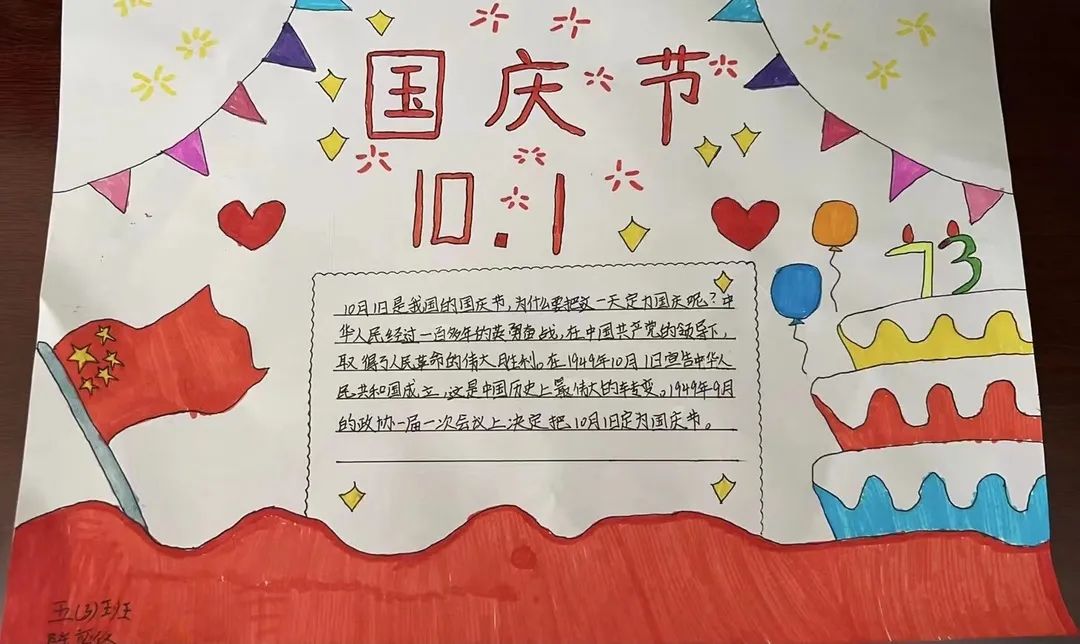 国庆节
10.1
73
10月1日是我国的国庆节,为什么要把这一天定为国庆呢?中
华人民经过一百多年的英勇奋战,在中国共产党的领导下,
取得了人民革命的伟大胜利。在1949年10月1日宣告中华人
民共和国成立,这是中国历史上最伟大的转变。1949年9月
的政协一届一次会议上决定把10月1日定为国庆节。
五(3)班